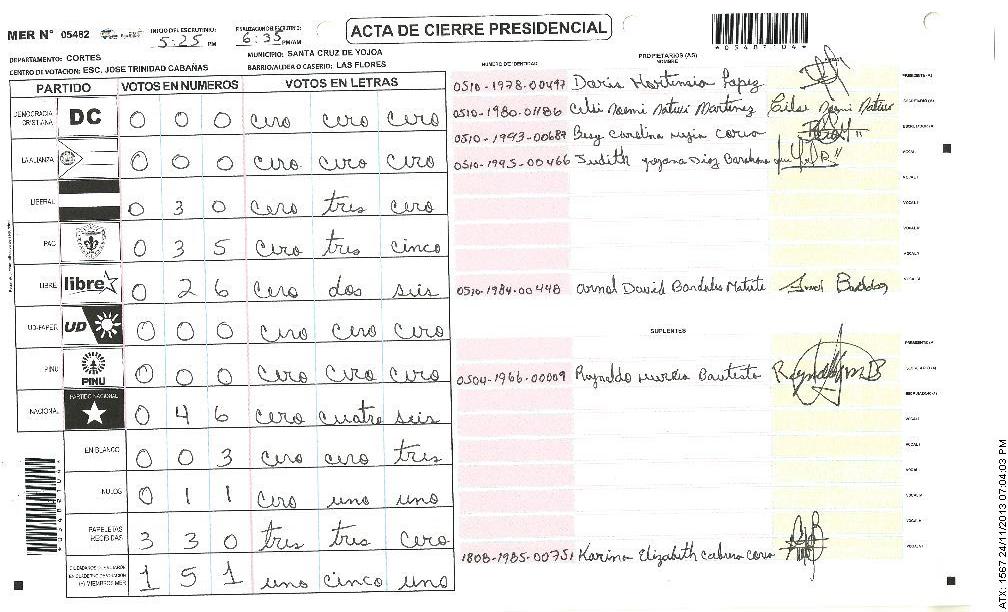 MER N° 05482 INICIO DEL ESCRUTINIO: 5:25 PM FINALIZACION DEL ESCRUTINIO: 6:35 PM/AM
ACTA DE CIERRE PRESIDENCIAL
*05487 04*
DEPARTAMENTO: CORTES MUNICIPIO: SANTA CRUZ DE YOJOA
CENTRO DE VOTACION: ESC. JOSE TRINIDAD CABAÑAS BARRIO/ALDEA O CASERIO: LAS FLORES
PARTIDO VOTOS EN NUMEROS VOTOS EN LETRAS
DEMOCRACIA CRISTIANA DC 0 0 0 cero cero cero
LA ALIANZA 0 0 0 cero cero cero
LIBERAL 0 3 0 cero tres cero
PAC 0 3 5 cero tres cinco
LIBRE libre 0 2 6 cero dos seis
UD-FAPER UD 0 0 0 cero cero cero
PINU PINU 0 0 0 cero cero cero
NACIONAL PARTIDO NACIONAL 0 4 6 cero cuatro seis
EN BLANCO 0 0 3 cero cero tres
NULOS 0 1 1 cero uno uno
PAPELETAS RECIBIDAS 3 3 0 tres tres cero
1 5 1 uno cinco uno
NUMERO DE IDENTIDAD PROPIETARIOS (AS) NOMBRE
0510-1978-00497 Doris Hortensia Lopez PRESIDENTE(A)
0510-1980-01186 Celei Noemi Natues Martinez SECRETARIO(A)
0510-1993-00689 Besy Carolina Mejia ESCRUTADOR(A)
0510-1995-00466 Judith Diaz Barahona VOCAL I
VOCAL II
0510-1984-00448 David Bardales Matute
SUPLENTES
PRESIDENTE(A)
0504-1966-00009 Reynaldo Bautista SECRETARIO(A)
ESCRUTADOR(A)
VOCAL I
1808-1985-00751 Karina Elizabeth Cabrera
ATX: 1567 24/11/2013 07:04:03 PM